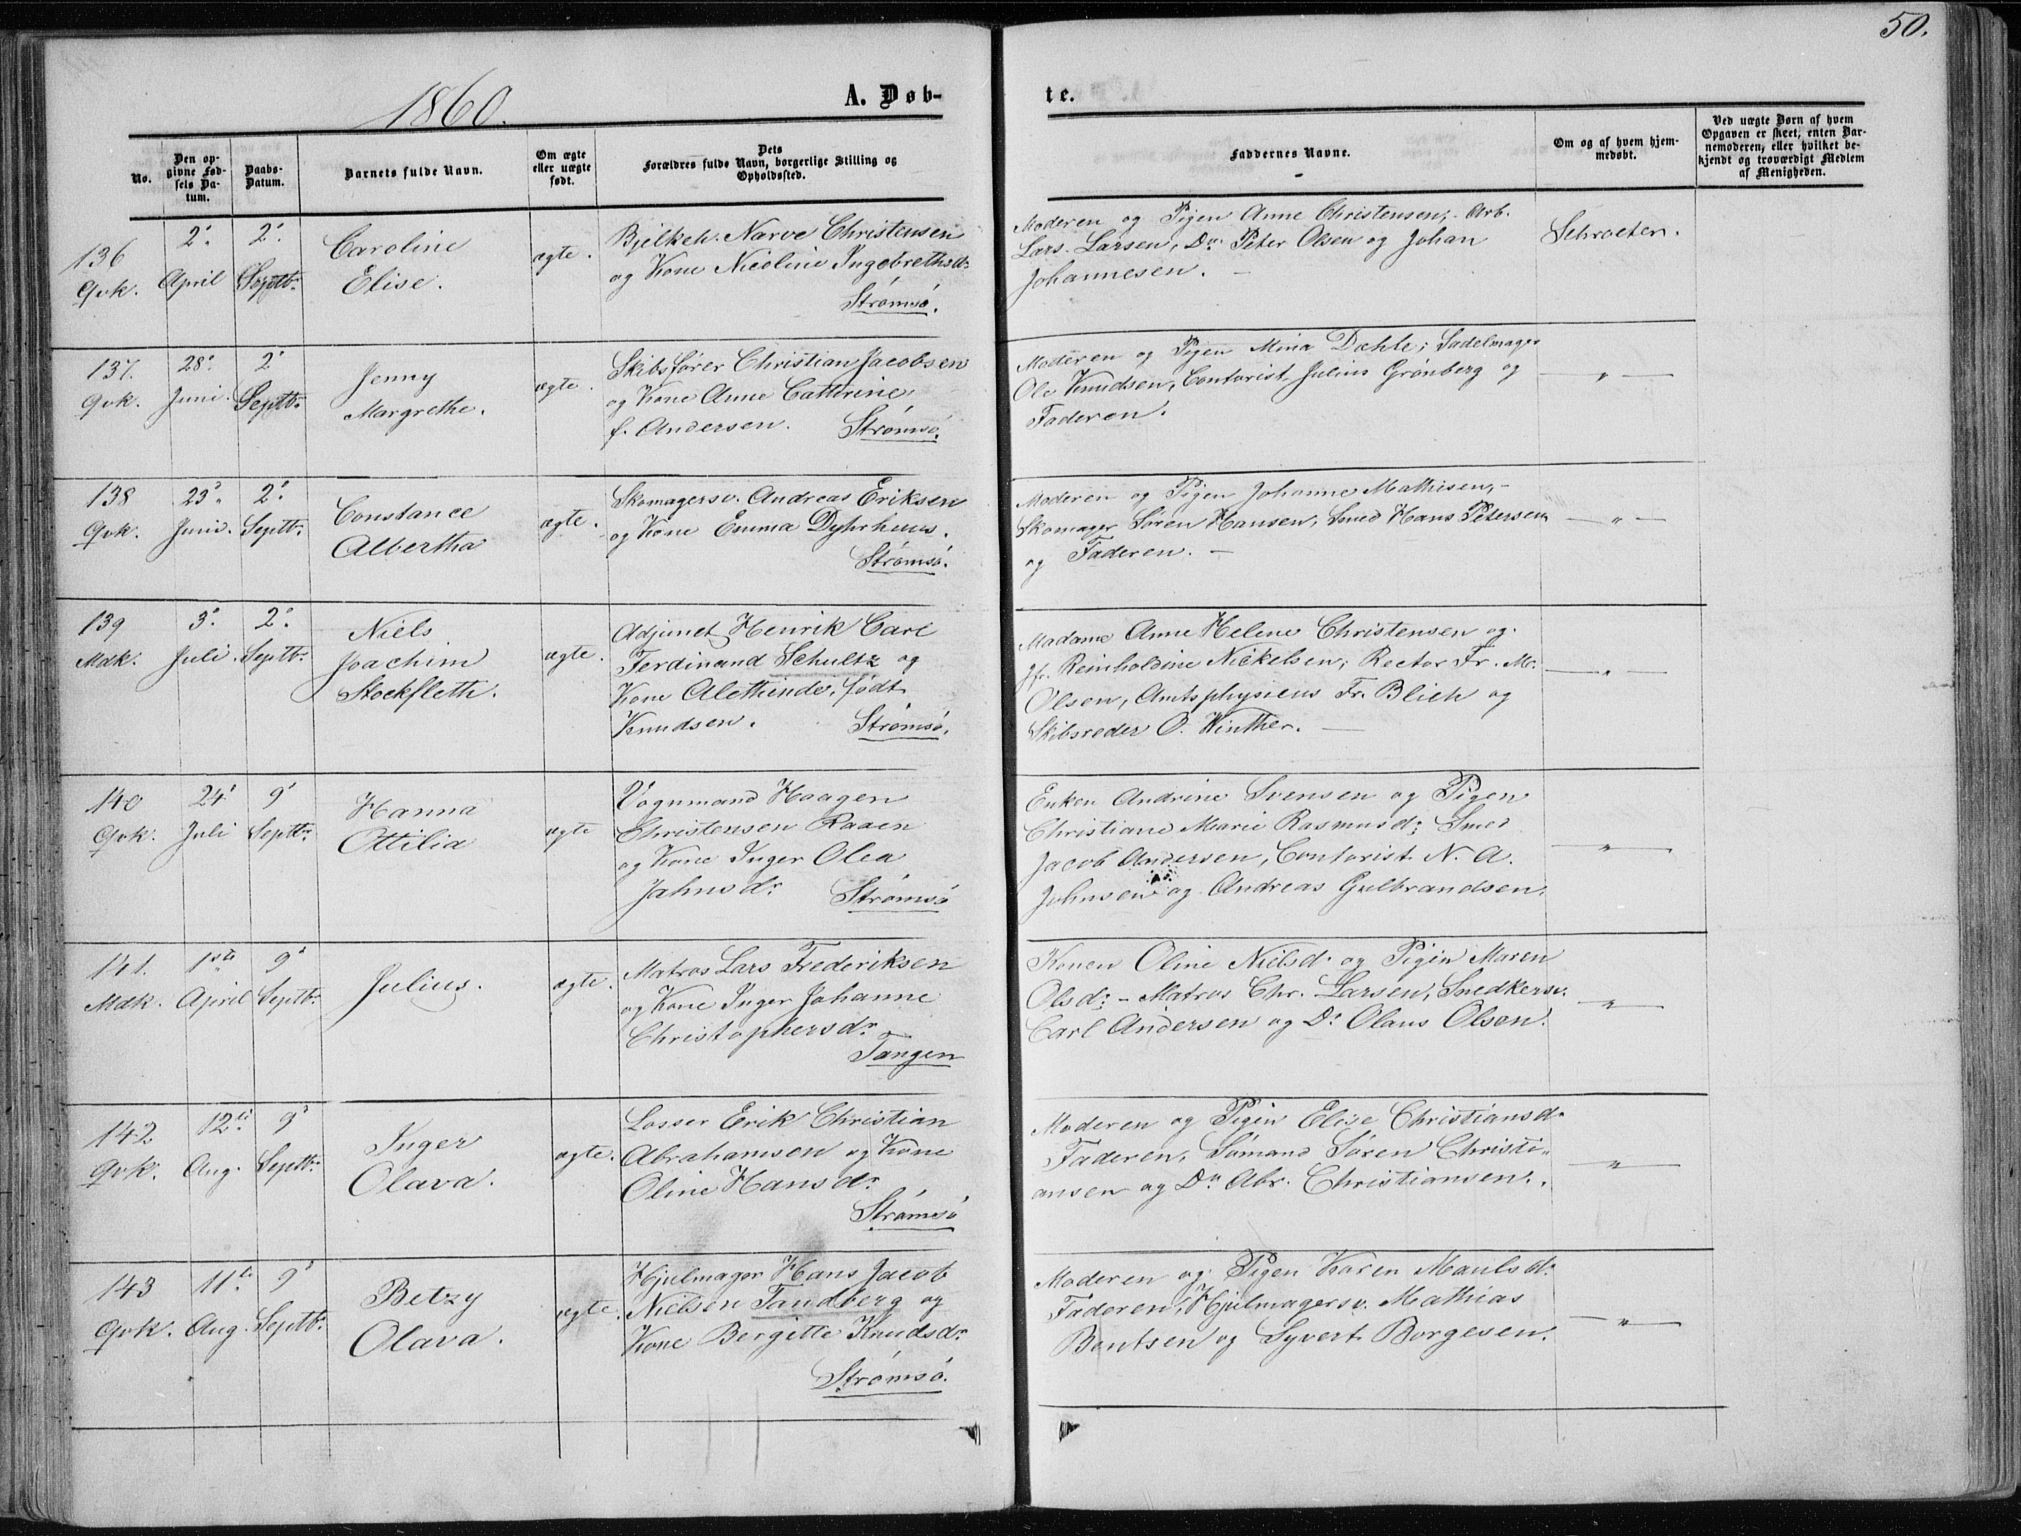 50.
1860.
A. Døb-
te.
No.
Den op-
givne Fød-
sels Da-
tum.
Daabs-
Datum.
Barnets fulde Navn.
Om ægte
eller uægte
født.
Dets
Forældres fulde Navn, borgerlige Stilling og
Opholdssted.
Faddernes Navne.
Om og af hvem hjem-
medøbt.
Ved uægte Børn af hvem
Opgaven er skeet, enten Bar-
nemoderen, eller hvilket be-
kjendt og troværdigt Medlem
af Menigheden.
136
Qvk.
2
April
2
Septbr.
Caroline
Elise.
ægte.
Bjelkeh. Narve Christensen
og Kone Nicoline Ingebrethsdr
Strømsø.
Moderen og Pigen Anne Christensen; - Arb.
Lars Larsen, Do Peter Olsen og Johan
Johannesen. -
Schroeter.
137.
Qvk.
28
Juni
2
Septbr.
Jenny
Margrethe.
ægte.
Skibsfører Christian Jacobsen
og Kone Anne Cathrine
f. Andersen. Strømsø.
Moderen og Pigen Mina Dahle; Sadelmager
Ole Knudsen, Contorist Julius Grønberg og
Faderen.
— " —
138
Qvk.
23
Juni.
2
Septbr.
Constance
Albertha
ægte.
Skomagersv. Andreas Eriksen
og Kone Emma Dyhrhuus.
Strømsø.
Moderen og Pigen Johanne Mathisen, -
Skomager Søren Hansen, Smed Hans Petersen
og Faderen. -
— " —
139
Mdk.
3
Juli.
2
Septbr.
Niels
Joachim
Stockfleth.
ægte.
Adjunct Henrik Carl
Ferdinand Schultz og
Kone Alethinde, født
Knudsen. Strømsø.
Madame Anne Helene Christensen og
Jfr. Reinholdine Nickelsen; Rector Fr. M.
Olsen, Amtsphysicus Fr. Blich og
Skibsreder O. Winther. —
— " —
140
Qvk.
24
Juli
9
Septbr.
Hanna
Ottilia
ægte
Vognmand Haagen
Christensen Raaen
og Kone Inger Olea
Jahnsdr. Strømsø
Enken Andrine Svensen og Pigen
Christiane Marie Rasmusd; Smed
Jacob Andersen, Contorist N. A.
Johnsen og Andreas Gulbrandsen.
— " —
141.
Mdk.
1ste
April
9
Septbr.
Julius.
ægte.
Matros Lars Frederiksen
og Kone Inger Johanne
Christophersdr.
Tangen
Konen Oline Nielsd. og Pigen Maren
Olsd: - Matros Chr. Larsen, Snedkersv.
Carl Andersen og Do Olaus Olsen.
— " —
142
Qvk.
12te
Aug.
9
Septbr.
Inger
Olava.
ægte.
Losser Erik Christian
Abrahamsen og Kone
Oline Hansdr.
Strømsø
Moderen og Pigen Elise Christiansd.
Faderen, Sømand Søren Christi-
ansen og Do Abr. Christiansen.
— " —
143
Qvk.
11te
Aug.
9
Septbr.
Betzy
Olava.
ægte.
Hjulmager Hans Jacob
Nielsen Tandberg og
Kone Bergitte Knudsdr.
Strømsø.
Moderen og Pigen Karen Maulsd.
Faderen, Hjulmagersv. Mathias
Bentsen og Syvert Borgesen.
— " —